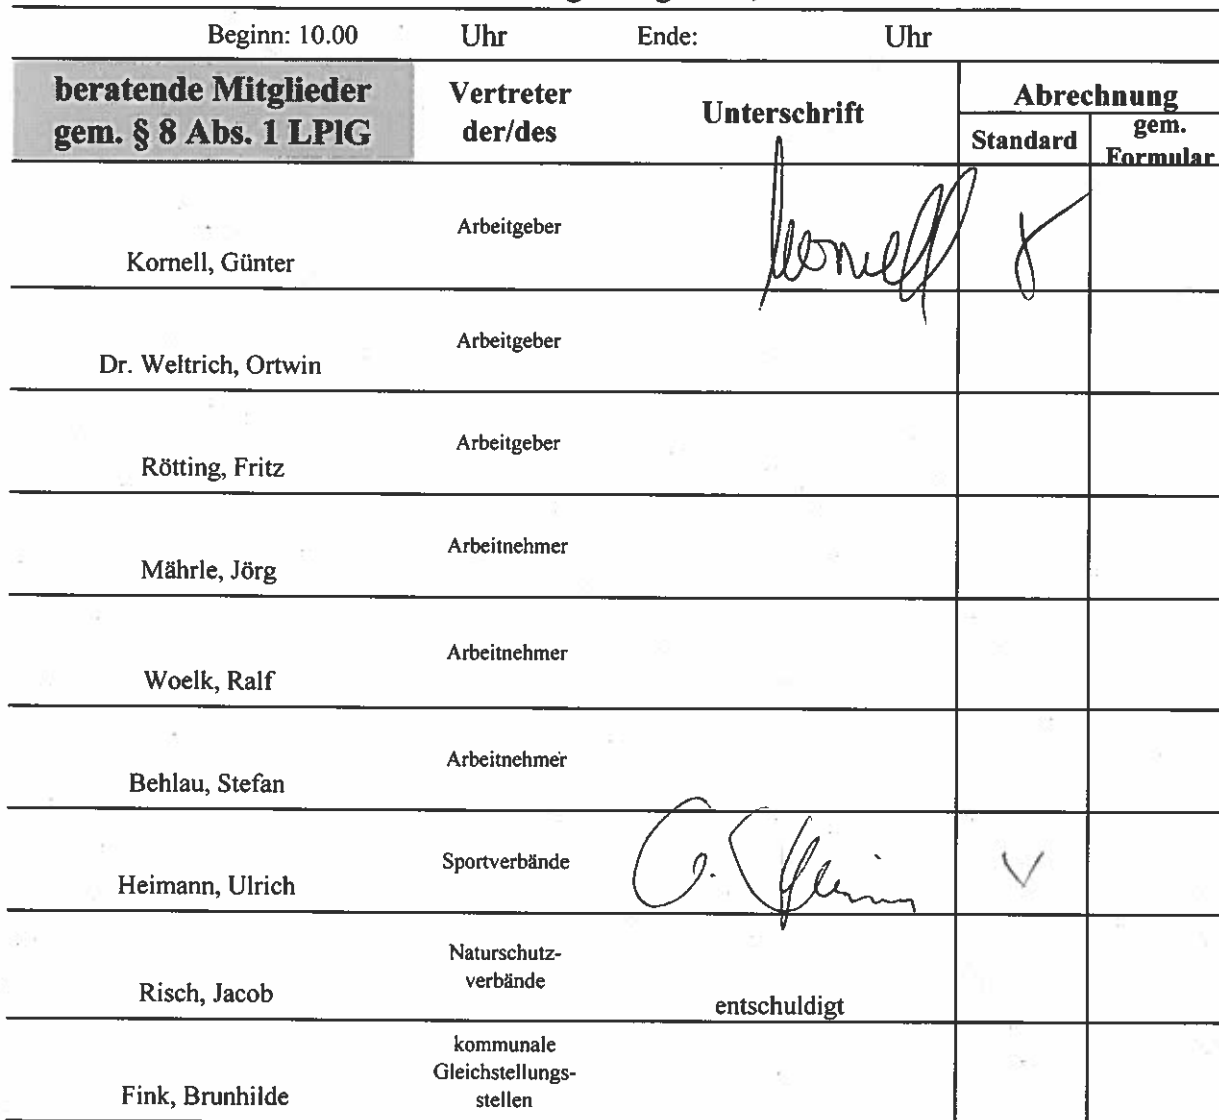 Beginn: 10.00 Uhr Ende: Uhr
beratende Mitglieder gem. § 8 Abs. 1 LPlG
Vertreter der/des
Unterschrift
Abrechnung
Standard
gem. Formular
Kornell, Günter
Arbeitgeber
Kornell
Dr. Weltrich, Ortwin
Arbeitgeber
Rötting, Fritz
Arbeitgeber
Mährle, Jörg
Arbeitnehmer
Woelk, Ralf
Arbeitnehmer
Behlau, Stefan
Arbeitnehmer
Heimann, Ulrich
Sportverbände
Risch, Jacob
Naturschutz-
verbände
entschuldigt
Fink, Brunhilde
kommunale
Gleichstellungs-
stellen